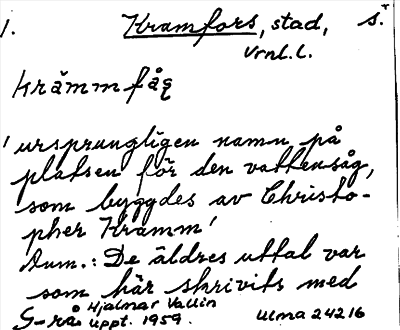 1. Kramfors, stad, s.
Vrnl.l.
krämmfåq
'ursprungligen namn på
platsen för den vattensåg,
som byggdes av Christo-
pher Kramm'
Anm.: De äldres uttal var
som här skrivits med
G-rå. Hjalmar Vallin
uppt. 1959. ulma 24216